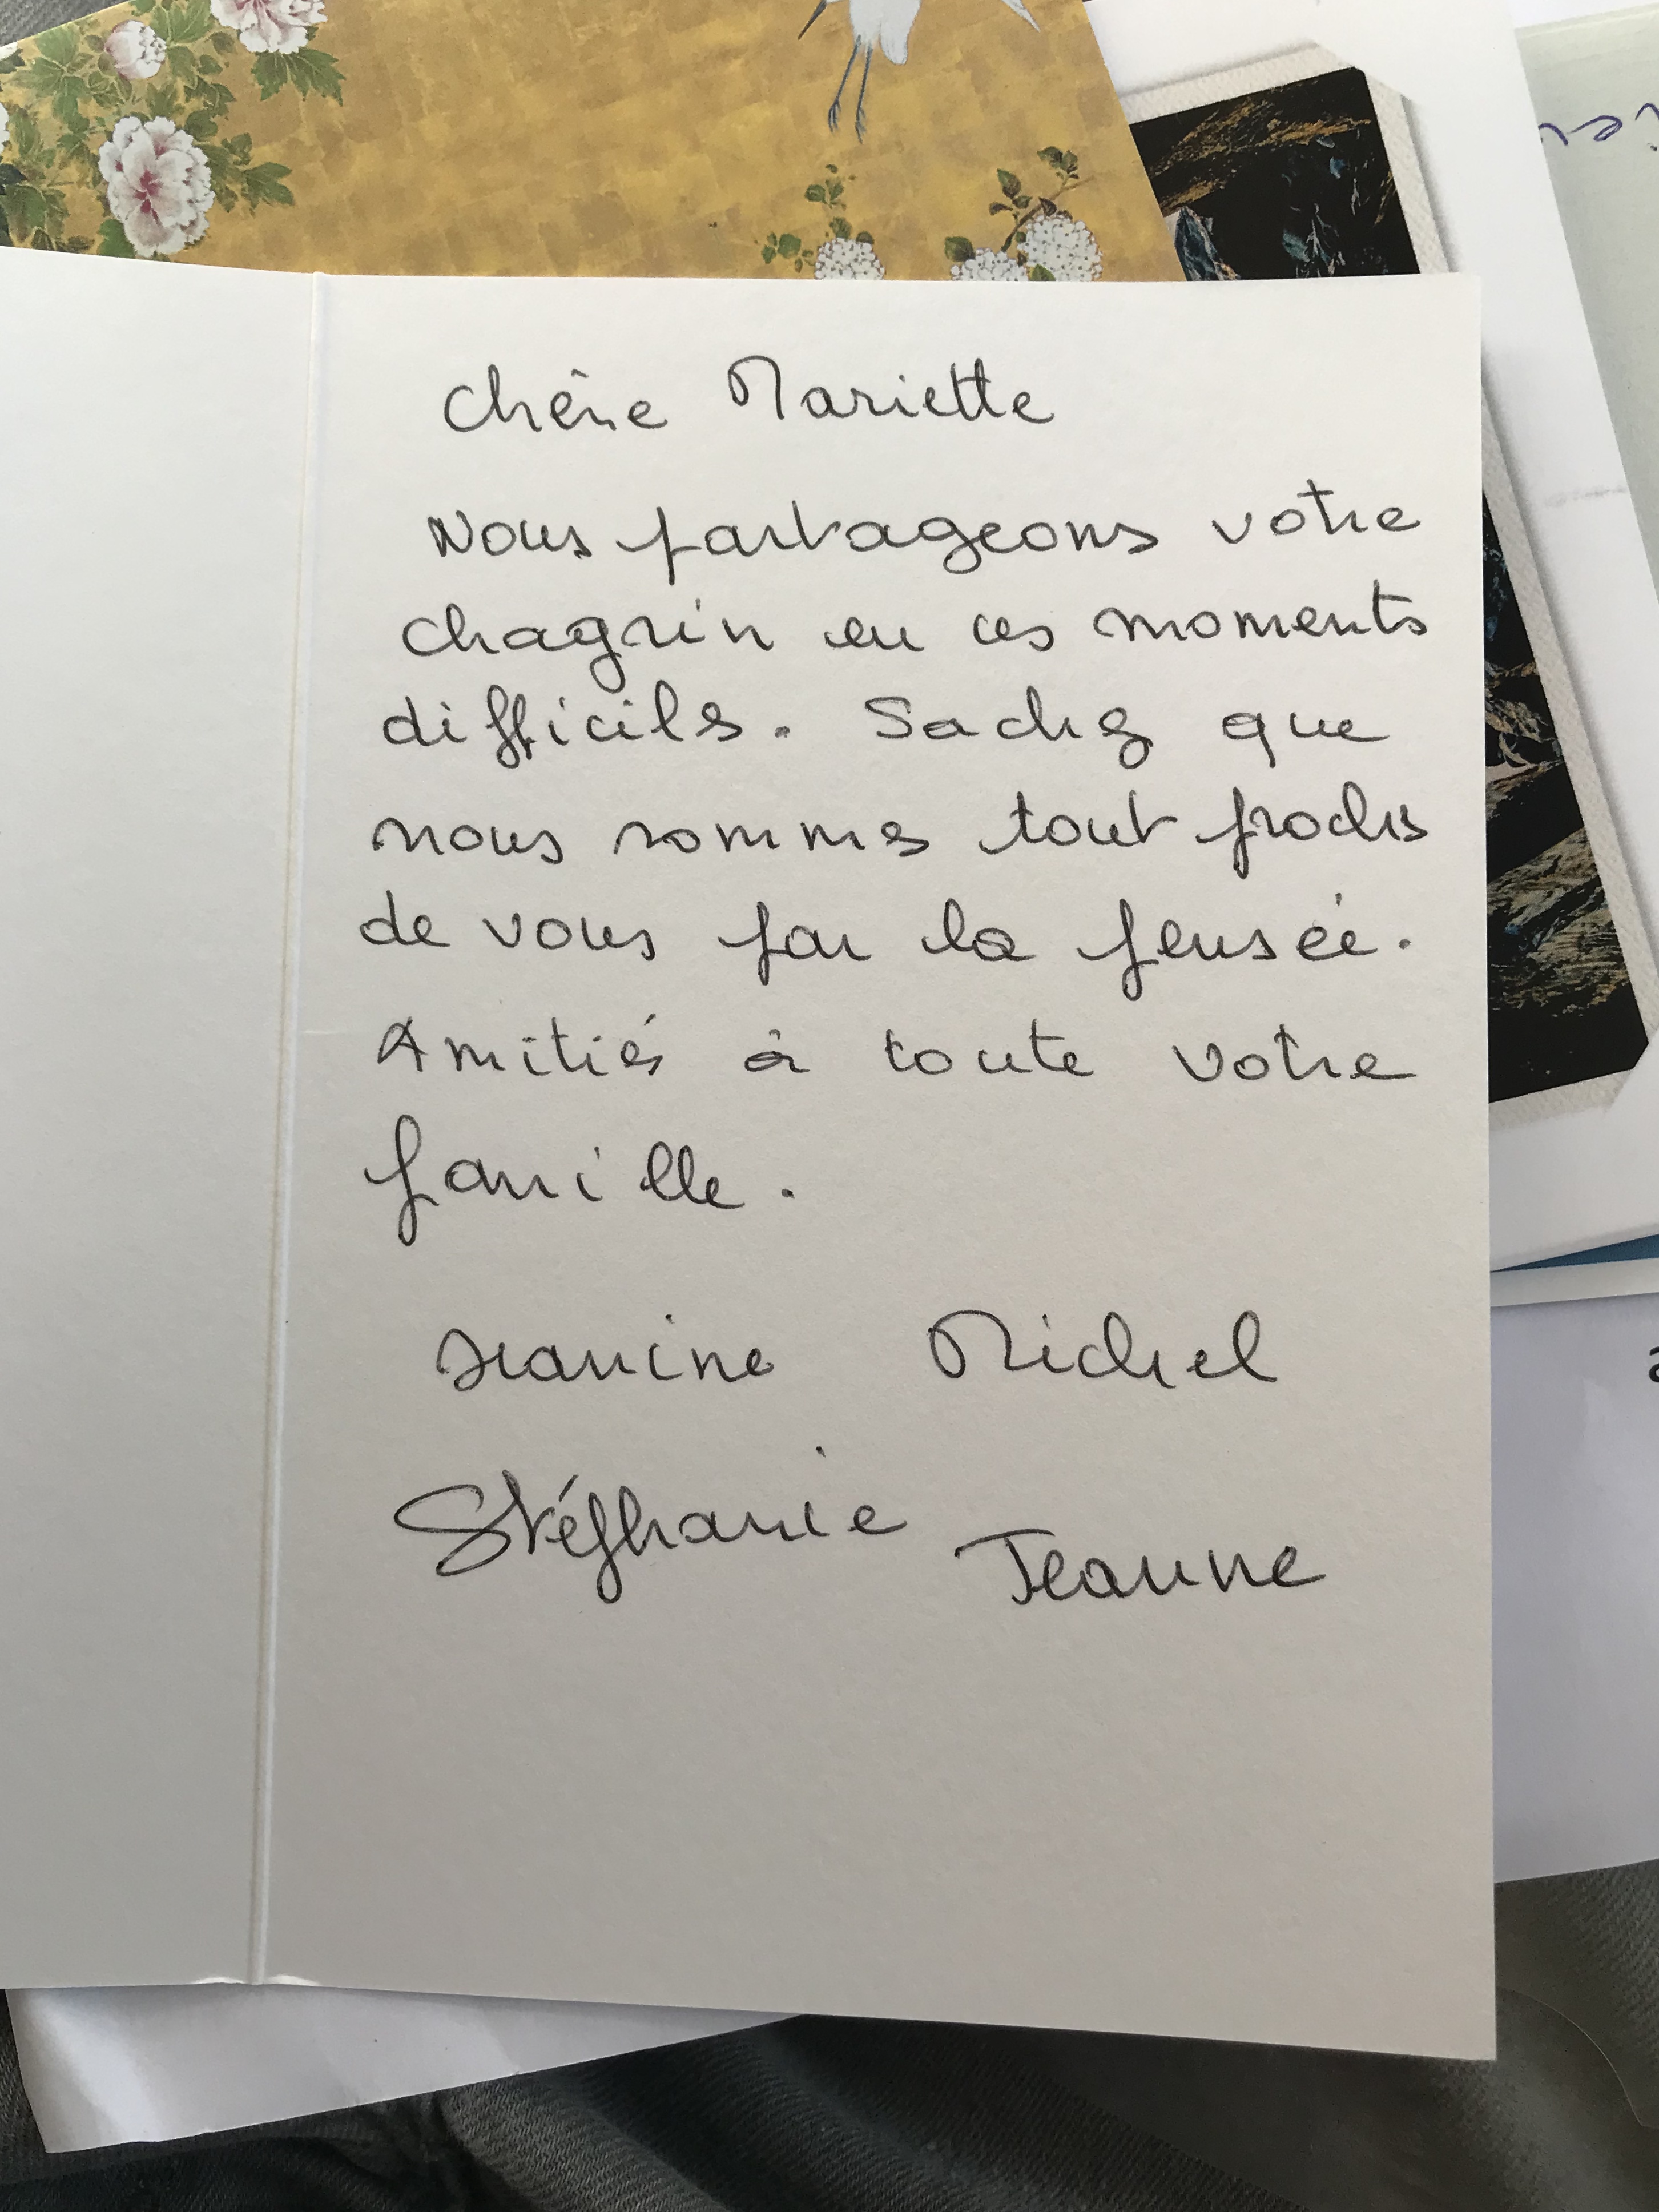 Chère Mariette
Nous partageons votre
chagrin en ces moments
difficiles. Sachez que
nous sommes tout proches
de vous par la pensée.
Amitiés à toute votre
famille.
Jeanine Michel
Stéphanie Jeanne